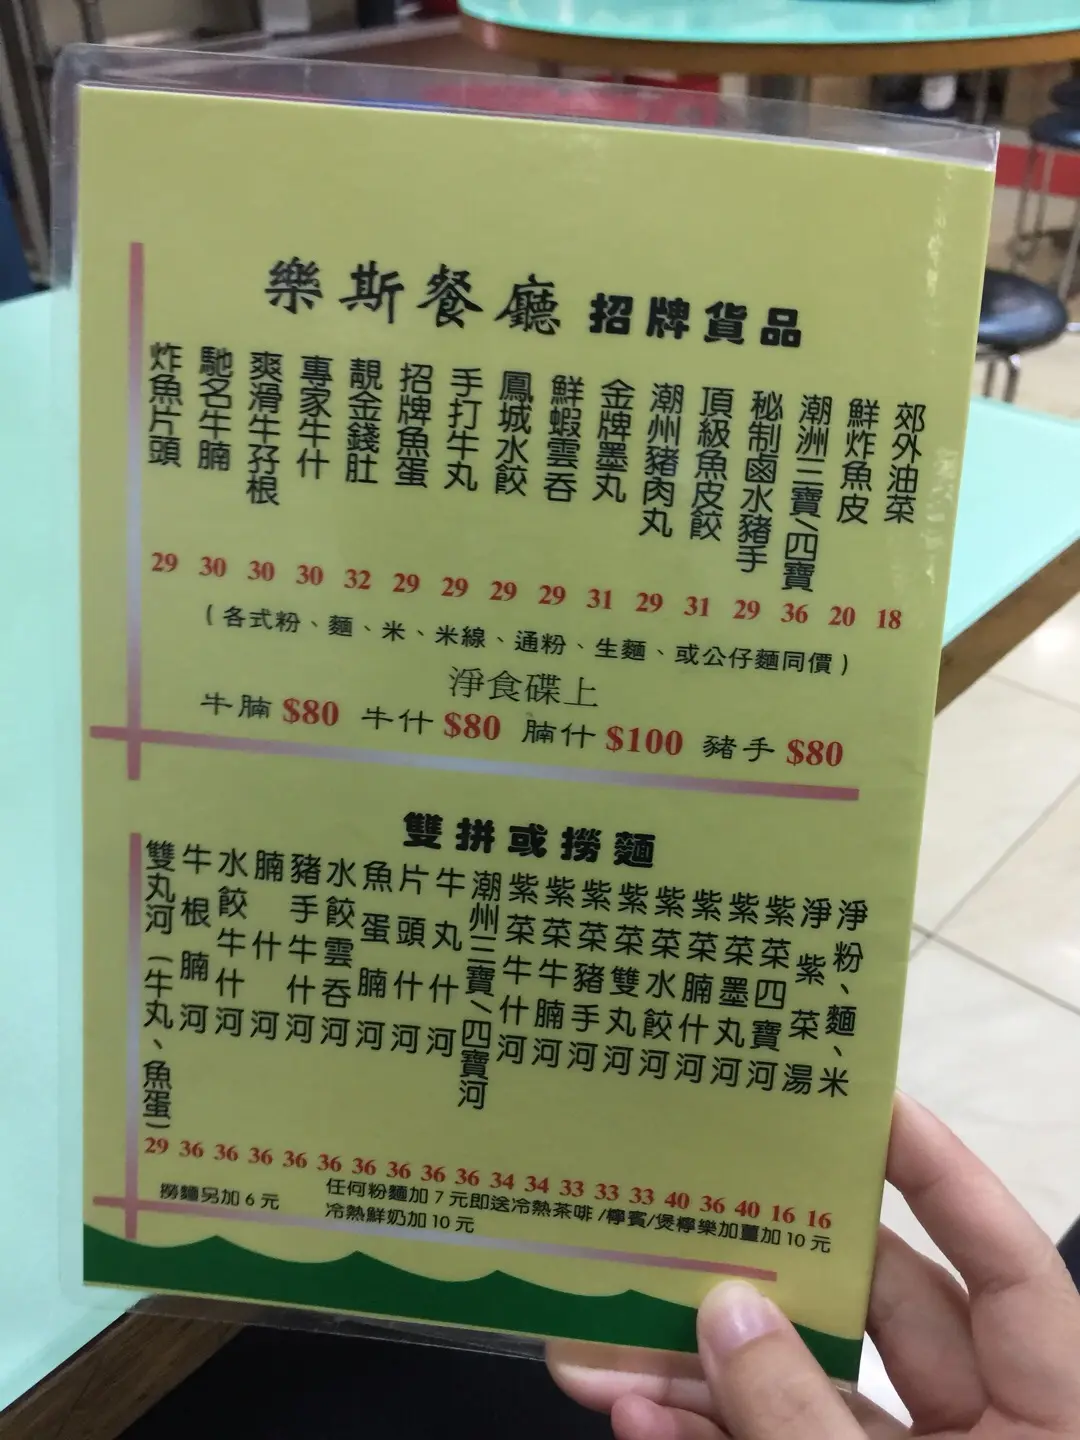 樂斯餐廳 招牌貨品
炸魚片頭
馳名牛腩
爽滑牛孖根
專家牛什
靚金錢肚
招牌魚蛋
手打牛丸
鳳城水餃
鮮蝦雲吞
金牌墨丸
潮州豬肉丸
頂級魚皮餃
秘制鹵水豬手
潮洲三寶/四寶
鮮炸魚皮
郊外油菜
29 30 30 30 32 29 29 29 29 31 29 31 29 36 20 18
(各式粉、麵、米、米線、通粉、生麵、或公仔麵同價)
淨食碟上
牛腩 $80 牛什 $80 腩什 $100 豬手 $80
雙拼或撈麵
雙丸河(牛丸、魚蛋)
牛根腩河
水餃牛什河
腩什河
豬手牛什河
水餃雲吞河
魚蛋腩河
片頭什河
牛丸什河
潮州三寶/四寶河
紫菜牛什河
紫菜牛腩河
紫菜豬手河
紫菜雙丸河
紫菜水餃河
紫菜腩什河
紫菜墨丸河
紫菜四寶河
淨紫菜湯
淨粉、麵、米
29 36 36 36 36 36 36 36 36 36 34 34 33 33 33 40 36 40 16 16
撈麵另加6元
任何粉麵加7元即送冷熱茶啡/檸賓/煲檸樂加薑加10元
冷熱鮮奶加10元